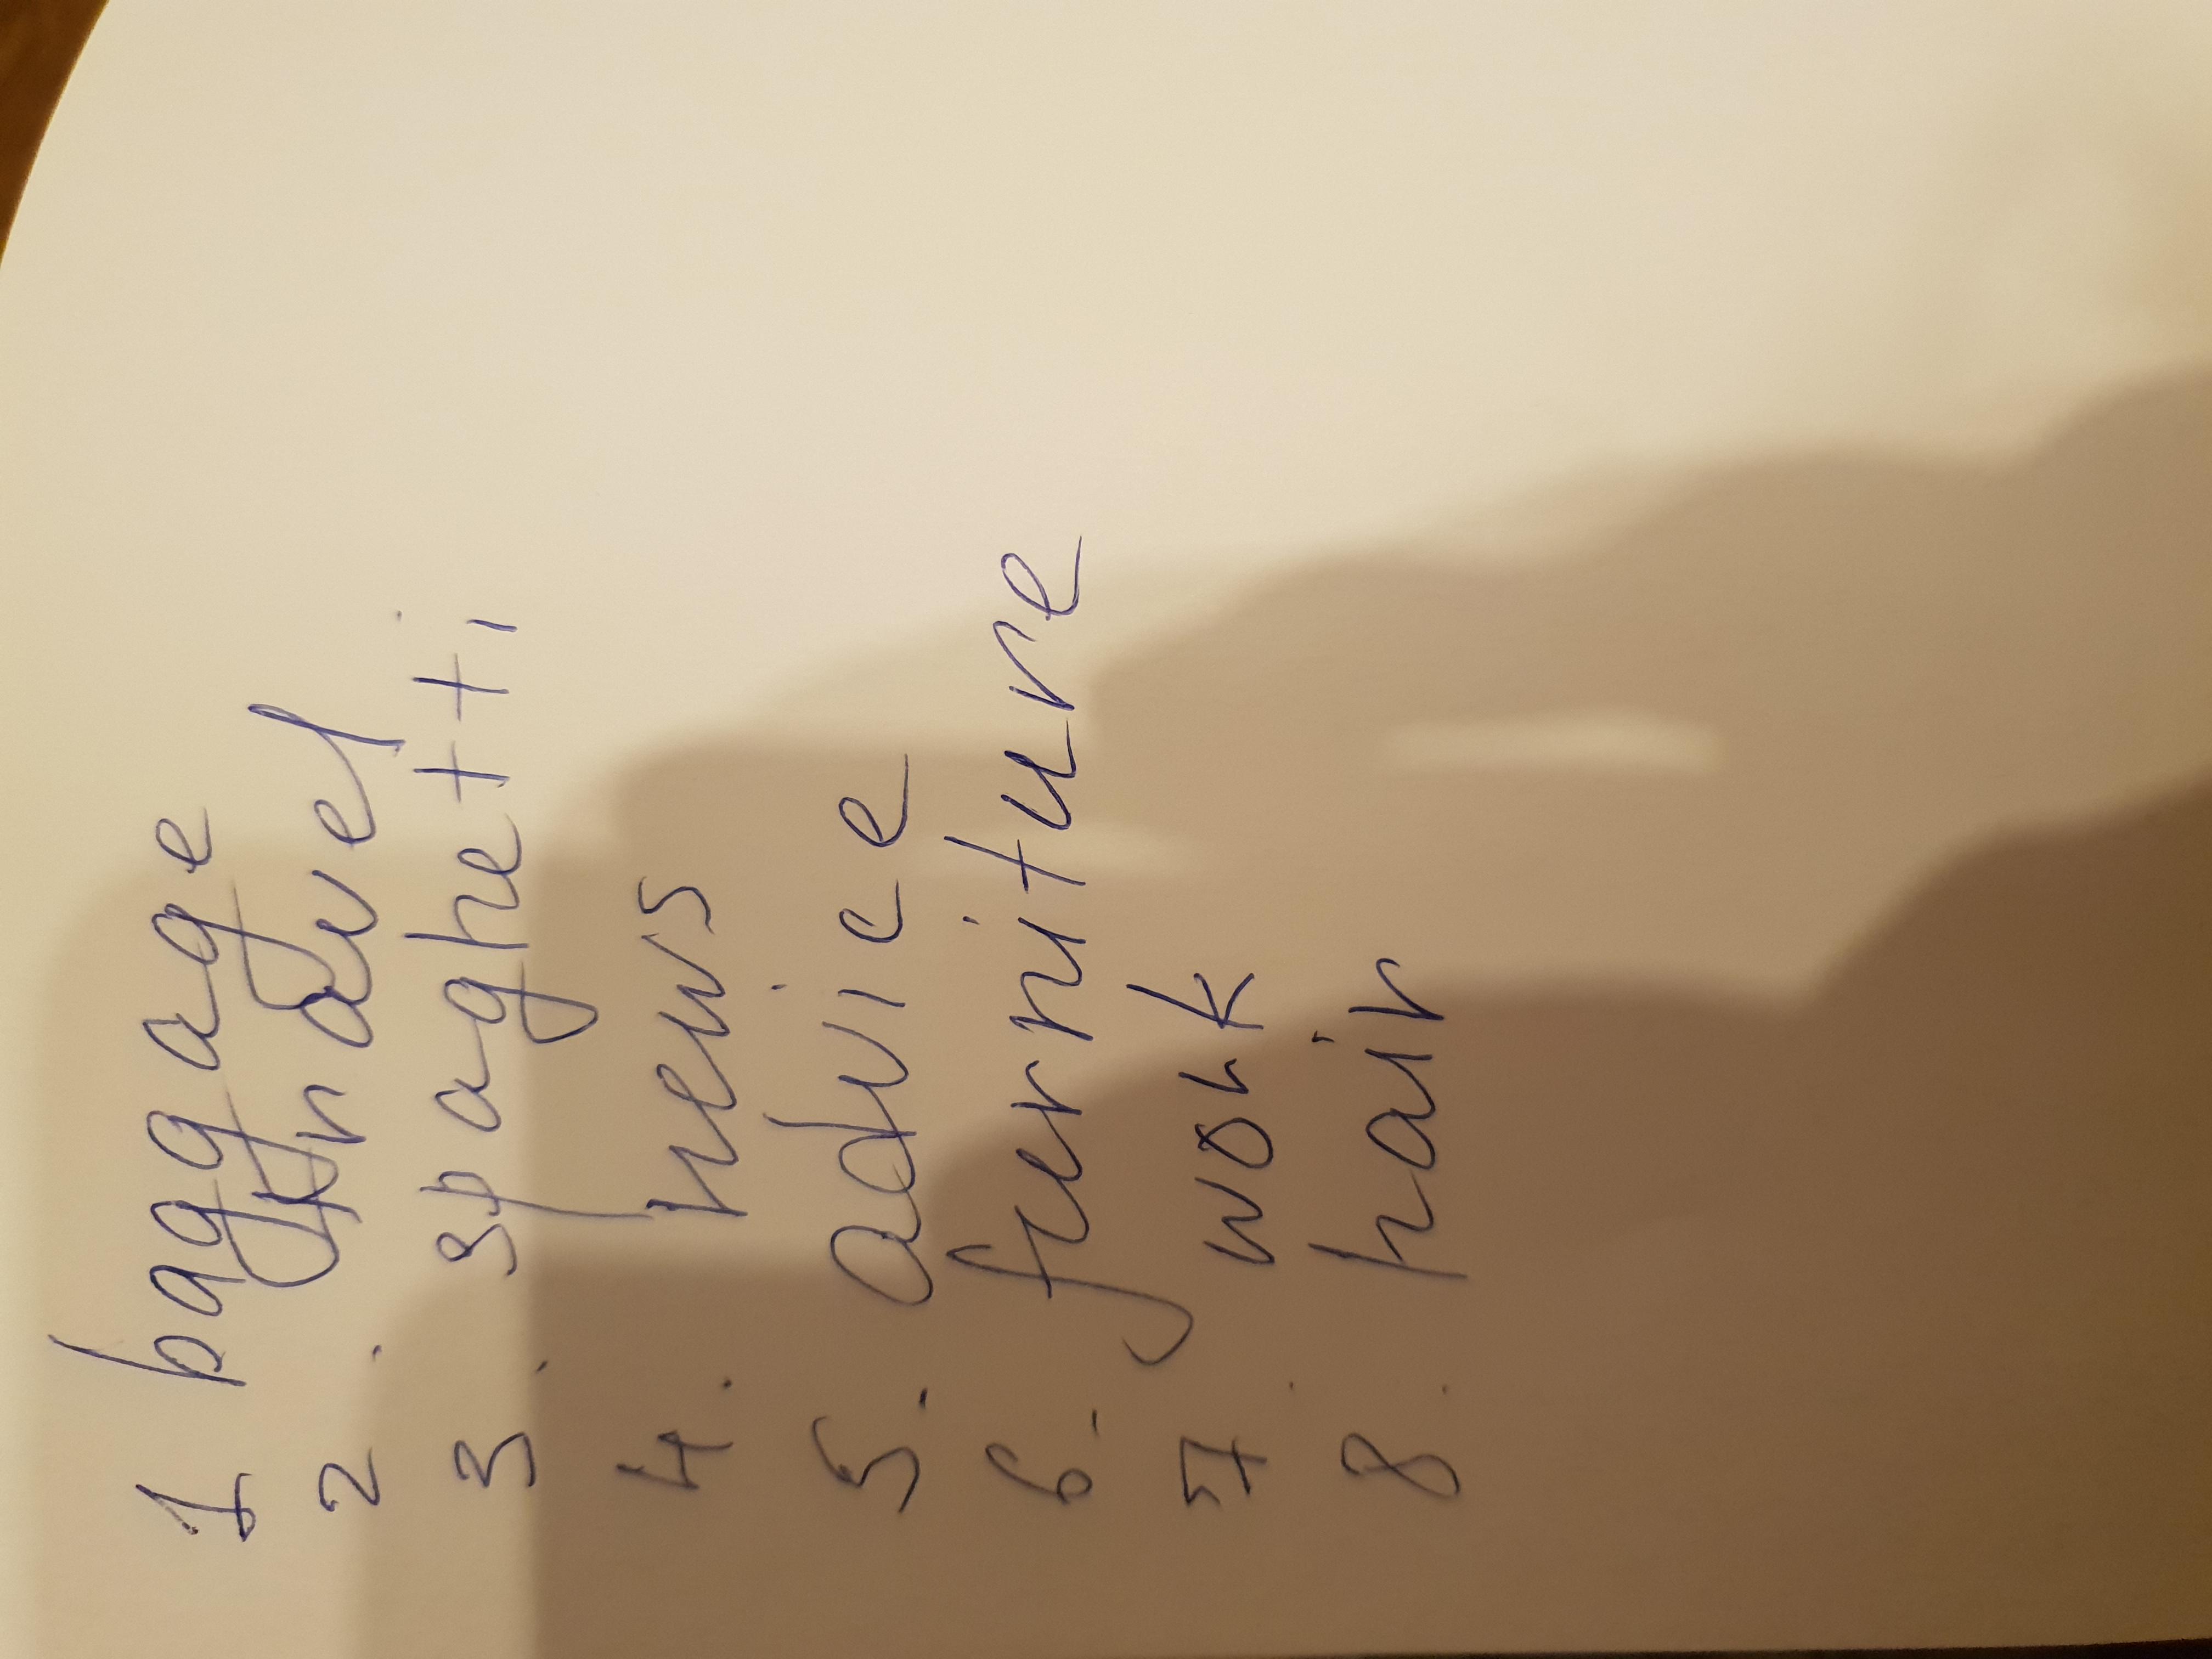 1 baggage
2. travel
3. spaghetti
4. news
5. advice
6. furniture
7. work
8. hair